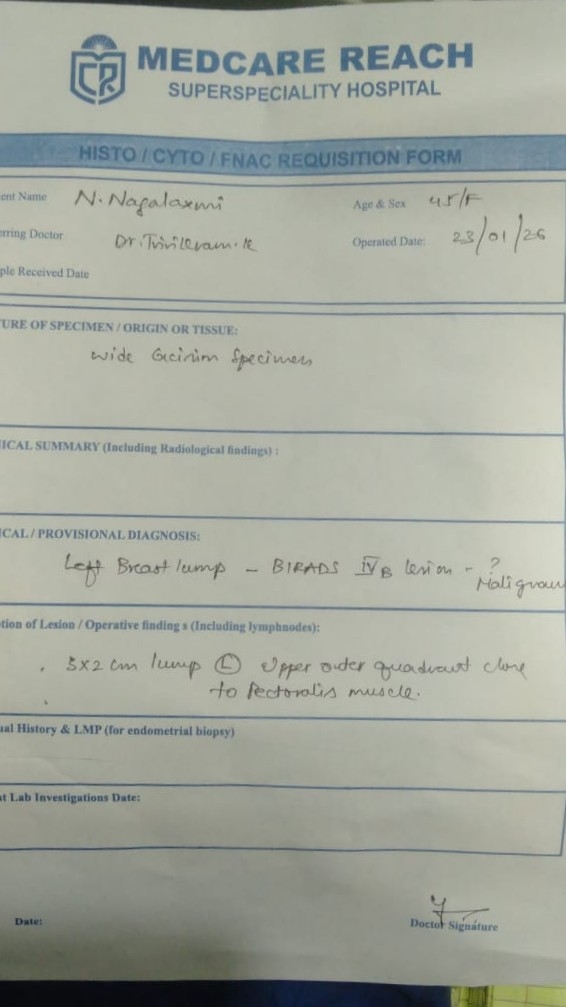 MEDCARE REACH
SUPERSPECIALITY HOSPITAL
HISTO / CYTO / FNAC REQUISITION FORM
ent Name N. Nagalaxmi Age & Sex 45/F
erring Doctor Dr. Operated Date: 23/01/26
ple Received Date
URE OF SPECIMEN / ORIGIN OR TISSUE:
wide Excision Specimen
ICAL SUMMARY (Including Radiological findings) :
CAL / PROVISIONAL DIAGNOSIS:
Left Breast lump - BIRADS IVB lesion - ?
Malignan
tion of Lesion / Operative finding s (Including lymphnodes):
x2 cm lump (L) Upper outer quadrant close
to Pectoralis muscle.
ual History & LMP (for endometrial biopsy)
t Lab Investigations Date:
Date:
Doctor Signature